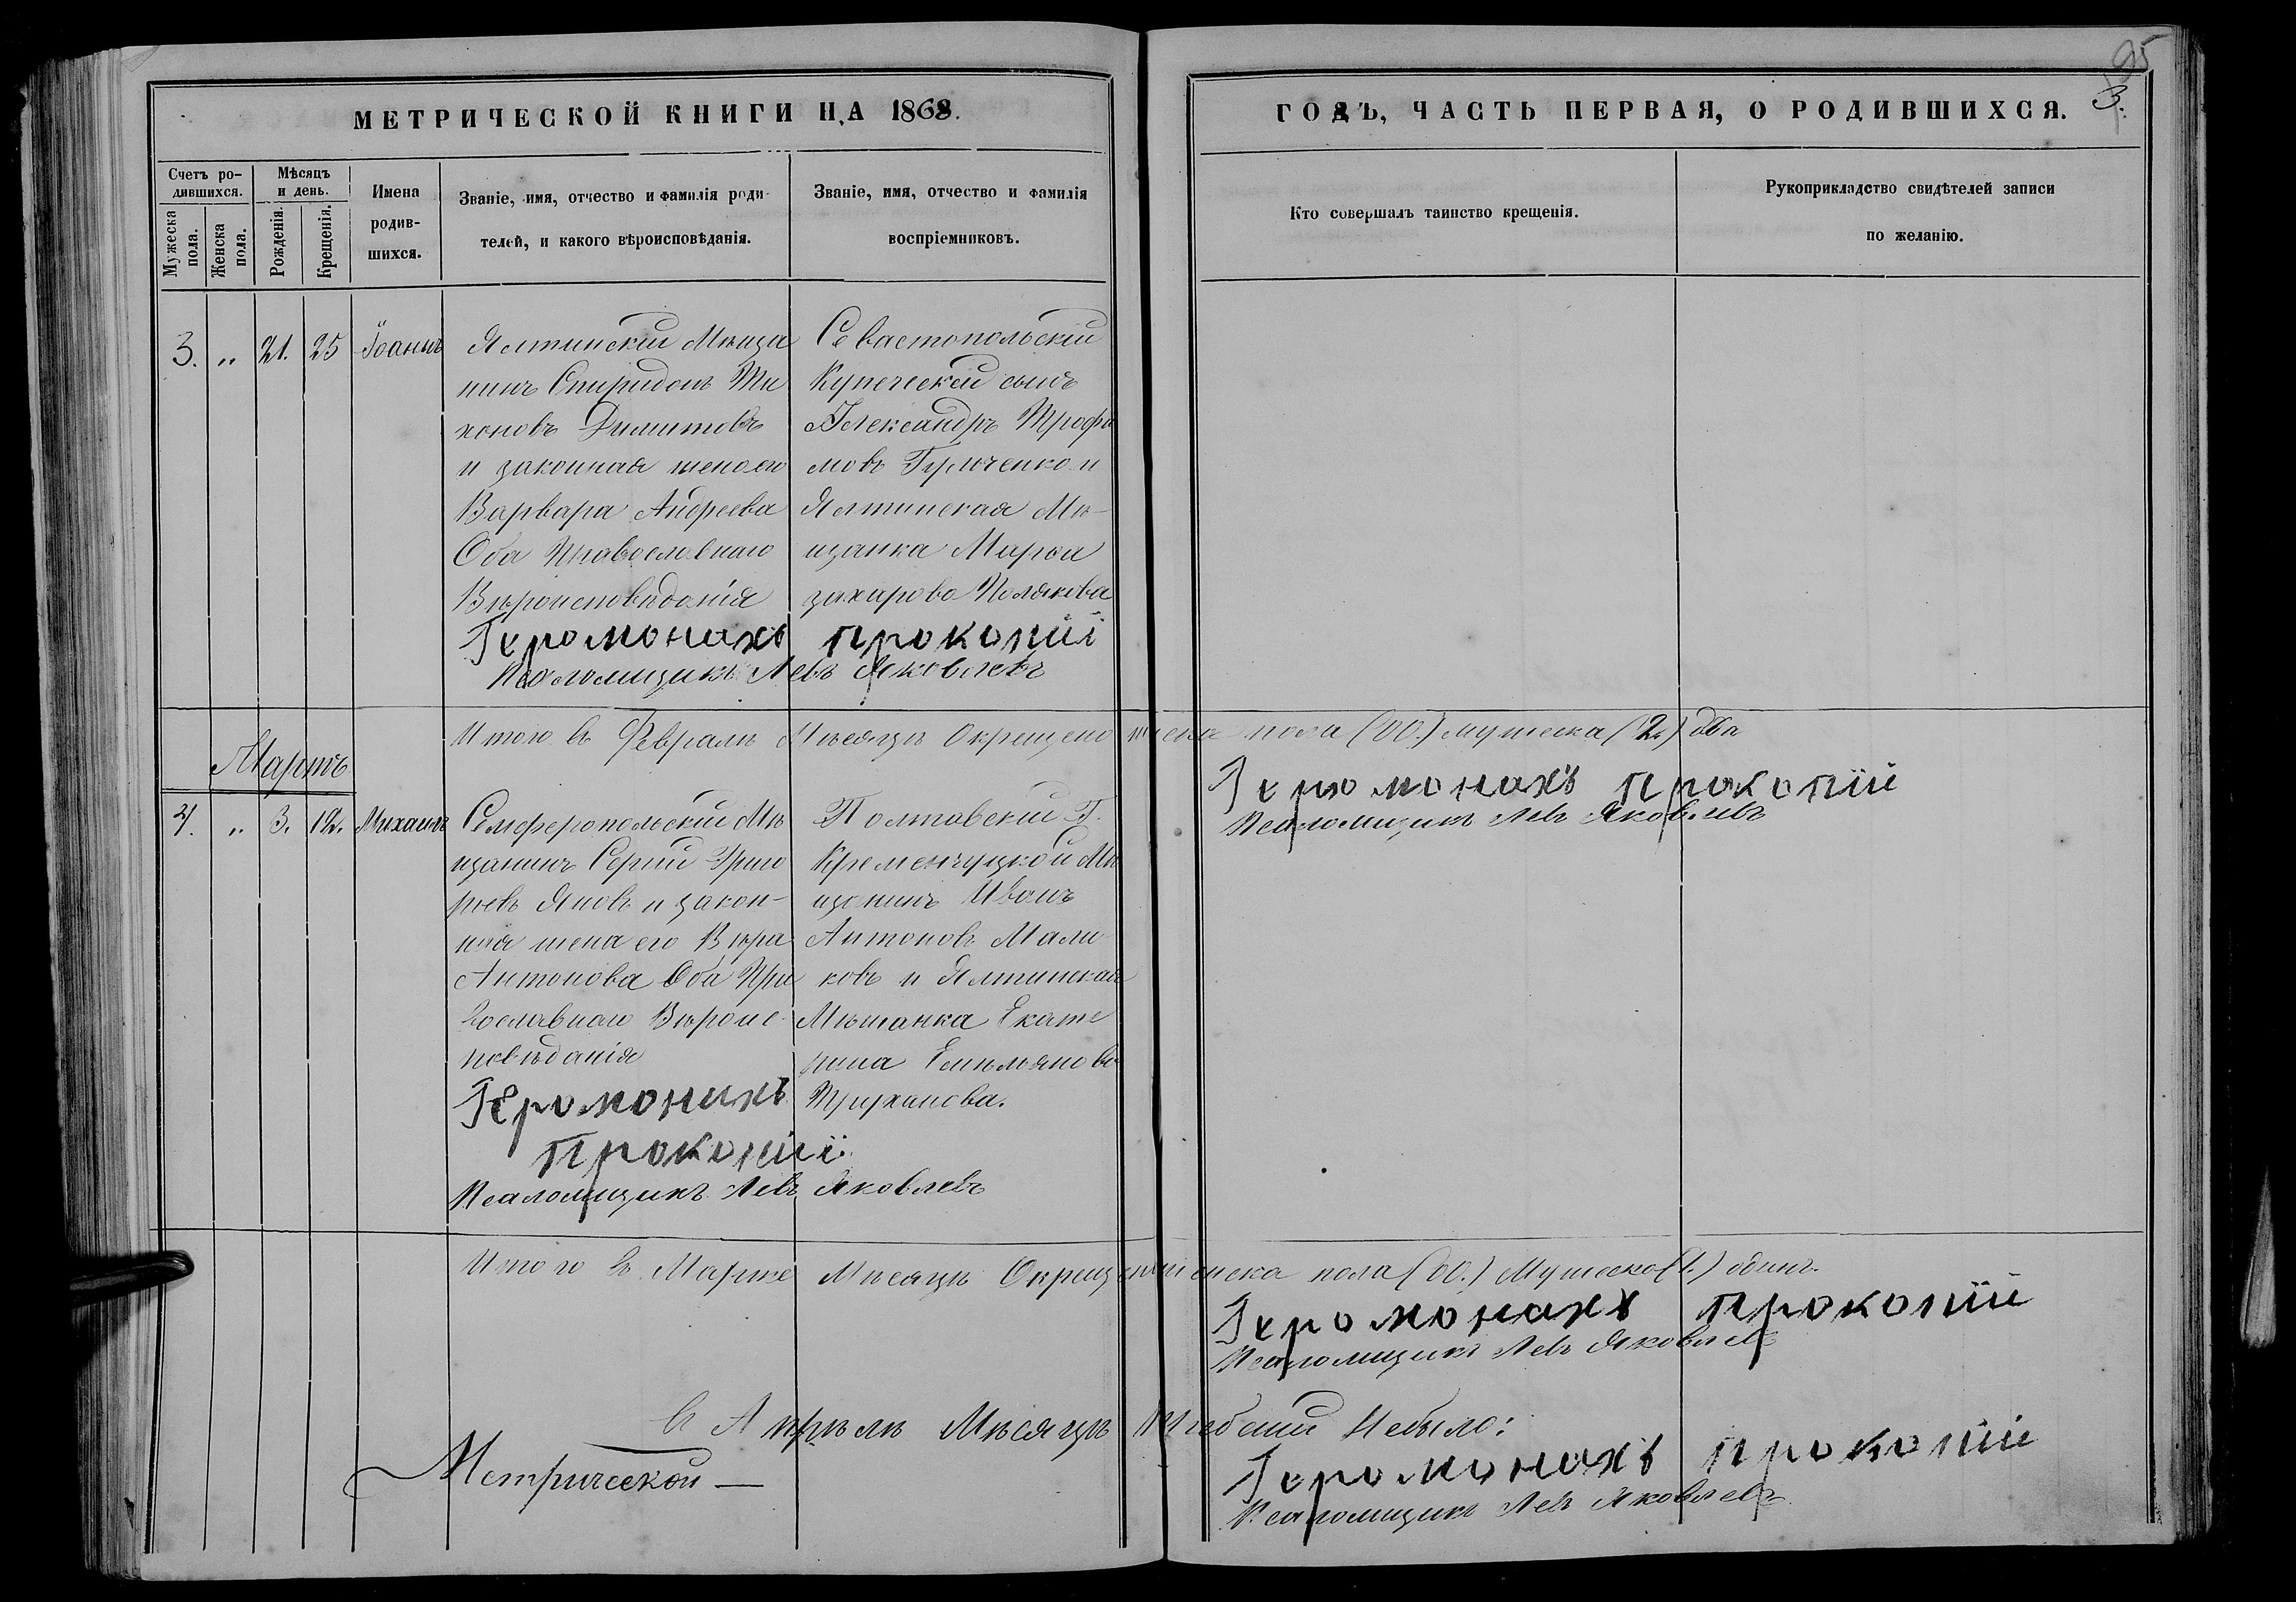 95
3.
МЕТРИЧЕСКОЙ КНИГИ НА 1868.
ГОДЪ, ЧАСТЬ ПЕРВАЯ, О РОДИВШИХСЯ.
Счетъ ро-
дившихся.
Мужеска
пола.
Женска
пола.
Мѣсяцъ
и день.
Рожденія.
Крещенія.
Имена
родив-
шихся.
Званіе, имя, отчество и фамилія роди-
телей, и какого вѣроисповѣданія.
Званіе, имя, отчество и фамилія
воспріемниковъ.
Кто совершалъ таинство крещенія.
Рукоприкладство свидѣтелей записи
по желанію.
3. " 21. 25 Іоаннъ
Ялтинскій Мѣща
нинъ Спиридонъ Ти
хоновъ
и законная жена его
Варвара Андреева
Оба Православнаго
Вѣроисповѣданія
Севастопольскій
Купеческій сынъ
Александръ Трофи
мовъ и
Ялтинская Мѣ-
щанка Марѳа
захарова Полякова
Іеромонахъ Прокопій
Псаломщикъ Левъ Яковлевъ
Итого въ Февралѣ Мѣсяцѣ Окрещено женска пола (00.) мужеска (2.) два
Іеромонахъ Прокопій
Псаломщикъ Левъ Яковлевъ
Мартъ
4. " 3. 12. Михаилъ
Симферопольскій Мѣ
щанинъ Сергій Григо
рьевъ Яновъ и закон-
ная жена его Вѣра
Антонова Оба Пра
вославнаго Вѣроис-
повѣданія
Полтавскій Г.
Кременчуцкой Мѣ
щанинъ Иванъ
Антоновъ Мали
ковъ и Ялтинская
Мѣшанка Екате
рина Емельянова
Труханова.
Іеромонахъ
Прокопій
Псаломщикъ Левъ Яковлевъ
Итого въ Марте Мѣсяцѣ Окрещено женска пола (00.) Мужеска (1.) одинъ.
Іеромонахъ Прокопій
Псаломщикъ Левъ Яковлевъ
въ Апрѣлѣ Мѣсяцѣ Небыло:
Іеромонахъ Прокопій
Псаломщикъ Левъ Яковлевъ
Метрической —